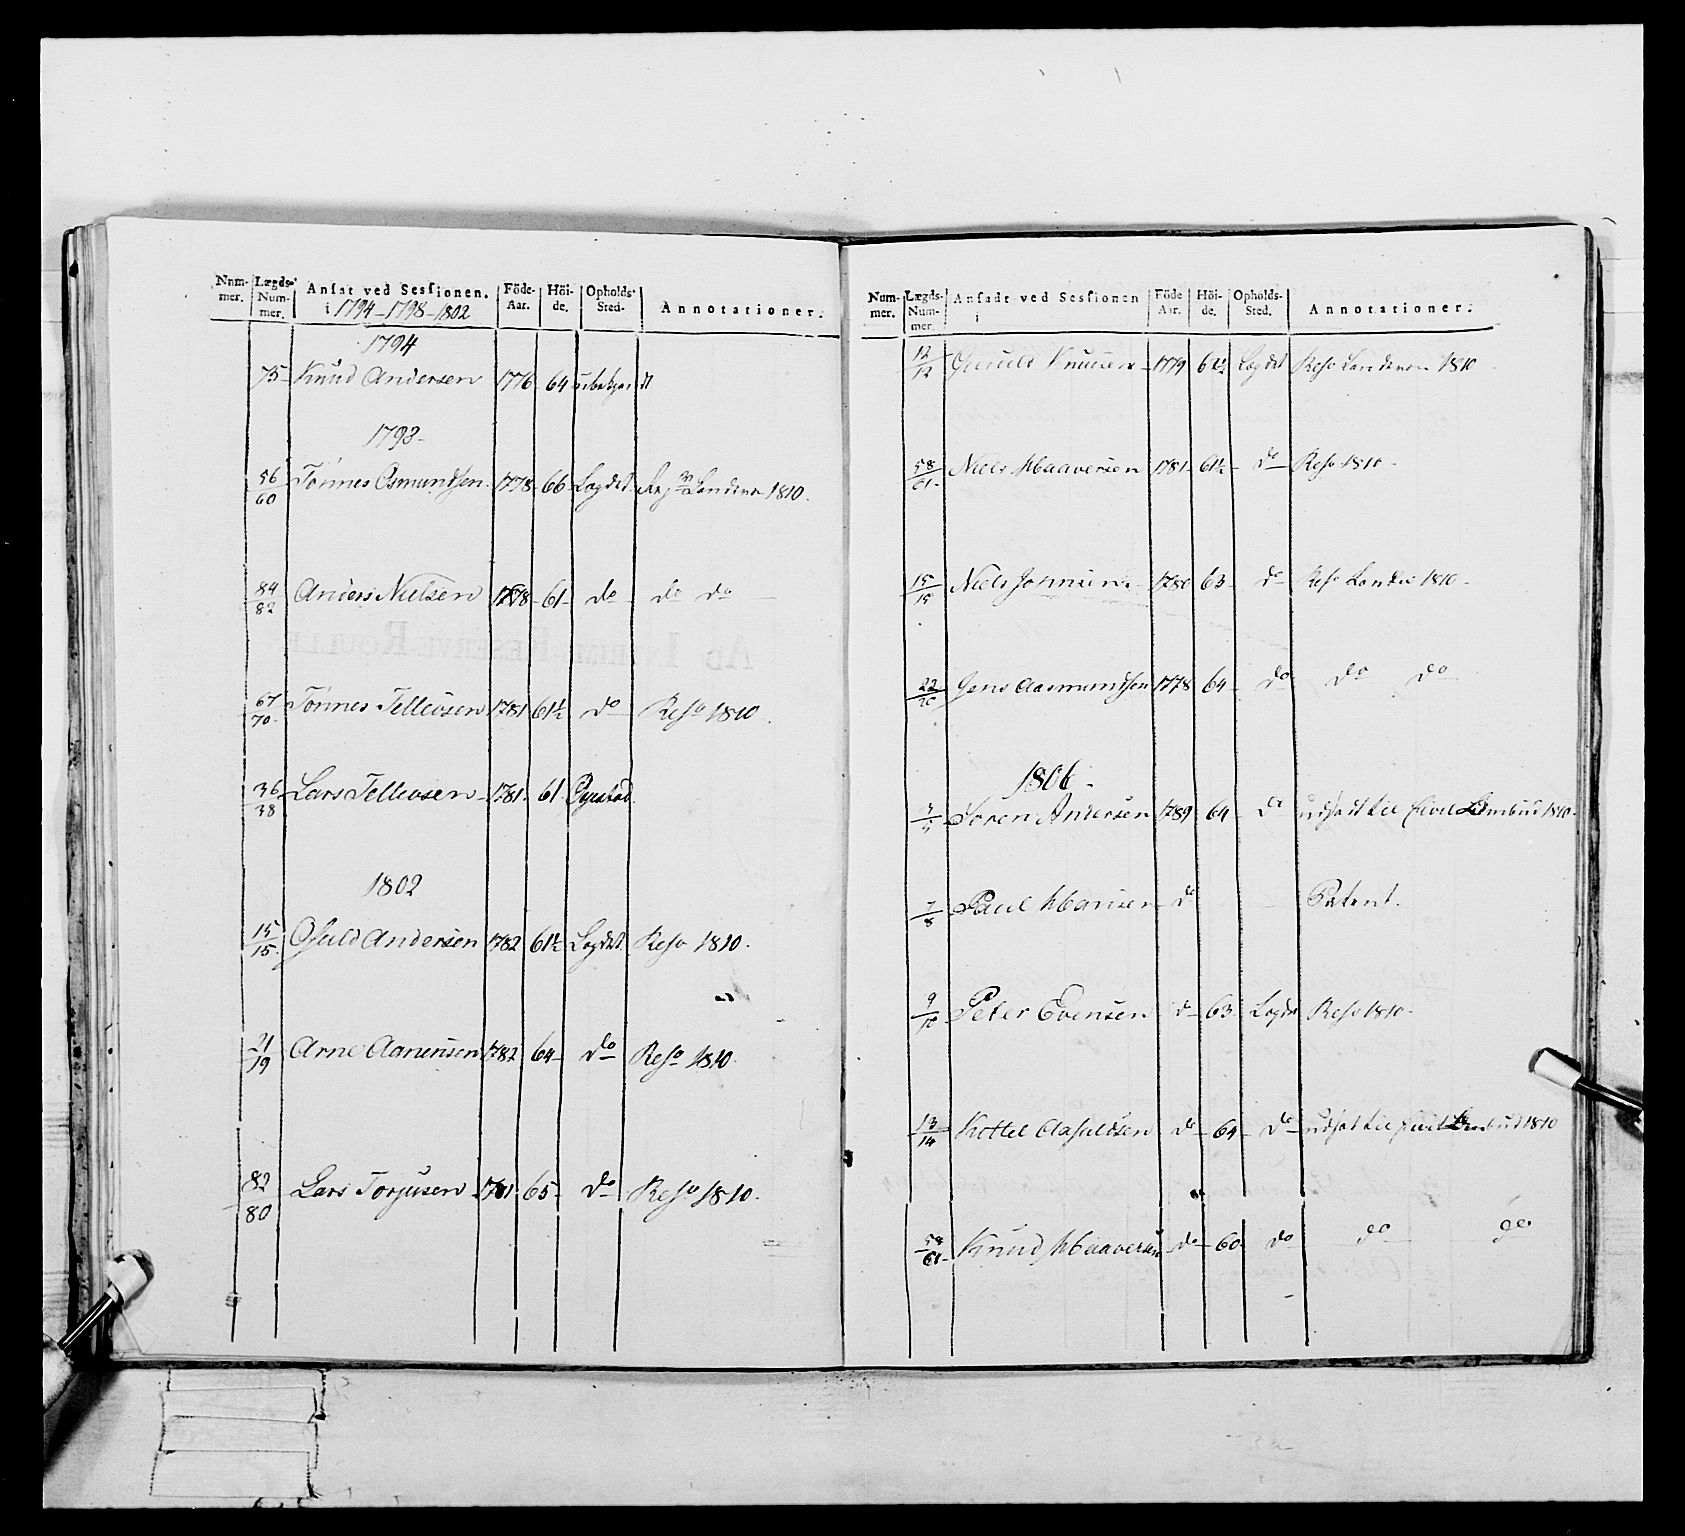 Num- mer. Lægds- Num- mer. Ansat ved Sessionen. i 1794-1798-1802 Föde- Aar. Höi- de. Opholds- Sted. Annotationer.
1794
75 Knud Andersen 1776 64 ubekjendt
1798
56/60 Tönnes Osmundsen 1778 66 Lægdet Landevær 1810.
84/82 Anders Nielsen 1778 61 do do do
67/70 Tönnes Tellevsen 1781 61½ do Reso 1810.
36/38 Lars Tellevsen 1781 61
1802
15/15 Osuld Andersen 1782 61½ Lægdet Reso 1810.
21/19 Arne Aanensen 1782 64 do Reso 1810.
82/80 Lars Torjusen 65 do Reso 1810.
Num- mer. Lægds- Num- mer. Ansadt ved Sessionen i Föde Aar. Höi- de. Opholds- Sted. Annotationer.
12/12 Knudsen 1779 Lægdet Reso Landevær 1810
58/61 Niels Haaversen 1781 61½ do Reso 1810
15/15 Niels Johnsen 1780 63 do Reso 1810
22/20 Jens Aasmundsen 1778 64 do do do
1806
3/3 Sören Andersen 1789 64 do udsadt til Civil Ombud 1810
7/8 Paul Hansen do Patent.
9/10 Peter Evensen do 63 Lægdet Reso 1810
13/14 Kittel Aasuldsen do 64 do udsat til Civil Ombud 1810
58/61 Knud Haaversen do 60 do do do